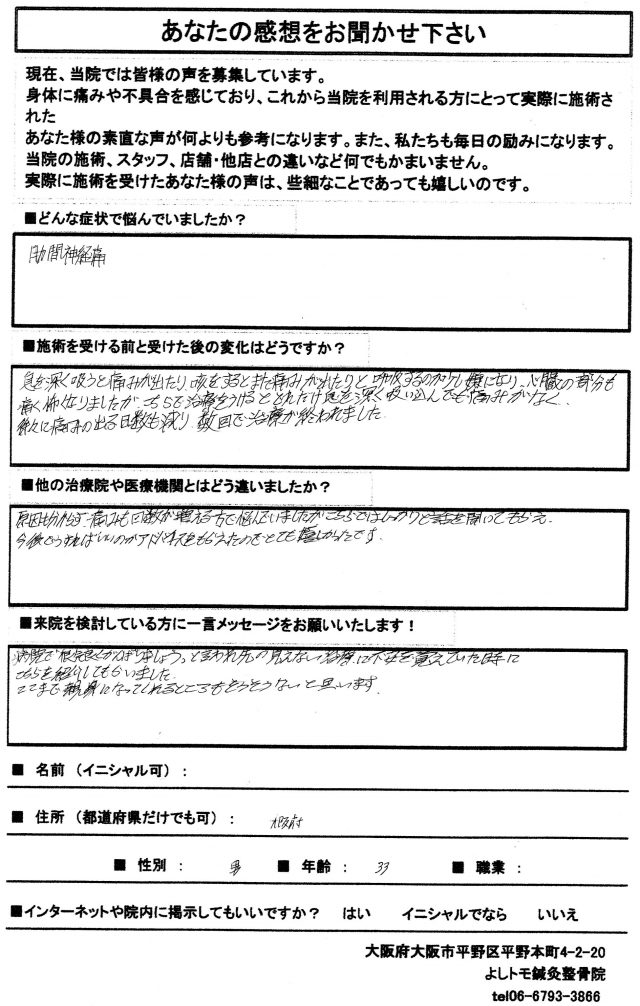 あなたの感想をお聞かせ下さい
現在、当院では皆様の声を募集しています。
身体に痛みや不具合を感じており、これから当院を利用される方にとって実際に施術さ
れた
あなた様の素直な声が何よりも参考になります。また、私たちも毎日の励みになります。
当院の施術、スタッフ、店舗・他店との違いなど何でもかまいません。
実際に施術を受けたあなた様の声は、些細なことであっても嬉しいのです。
■どんな症状で悩んでいましたか？
肋間神経痛
■施術を受ける前と受けた後の変化はどうですか？
息を深く吸うと痛みが出たり、咳をするとまた痛みがぶれたりと 呼吸するのが少し嫌になり、心臓の部分も
痛く怖くなりましたが こちらで治療をうけると どれだけ息を深く吸い込んでも痛みがなく、
徐々に痛みの出る日数も減り、数回で治療が終われました。
■他の治療院や医療機関とはどう違いましたか？
原因も分からず、痛みも回数が増える一方で悩んでいましたが こちらではしっかりと話を聞いてもらえ、
今後どうすればいいのかアドバイスをもらえたのでとても嬉しかったです。
■来院を検討している方に一言メッセージをお願いいたします！
病院で「根気良くがんばりましょう。」と言われ先の見えない治療に不安を覚えていた時に
こちらを紹介してもらいました。
ここまで親身になってくれるところもそうそうないと思います。
■ 名前 （イニシャル可）：
■ 住所 （都道府県だけでも可）： 大阪府
■ 性別 ： 男 ■ 年齢 ： 33 ■ 職業 ：
■インターネットや院内に掲示してもいいですか？ はい イニシャルでなら いいえ
大阪府大阪市平野区平野本町4-2-20
よしトモ鍼灸整骨院
tel06-6793-3866